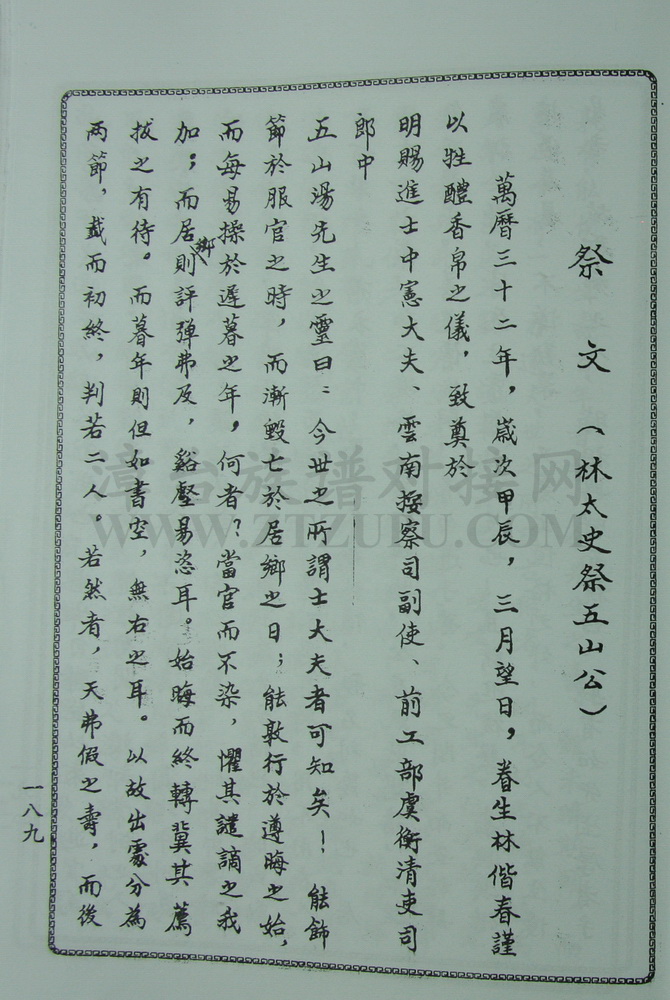 祭 文 （林太史祭五山公）
萬曆三十二年，歲次甲辰，三月望日，眷生林偕春謹
以牲醴香帛之儀，致奠於
明賜進士中憲大夫、雲南按察司副使、前工部虞衡清吏司
郎中
五山湯先生之靈曰：今世之所謂士大夫者可知矣！能飾
節於服官之時，而漸毀亡於居鄉之日；能敦行於遵晦之始，
而每易操於遲暮之年，何者？當官而不染，懼其譴謫之我
加；而居鄉則評彈弗及，谿壑易恣耳。始晦而終轉冀其薦
拔之有待。而暮年則但如書空，無右之耳。以故出處分為
两節，截而初終，判若二人。若然者，天弗假之壽，而後
一八九
漳台族谱对接网
WWW.ZTZUPU.COM